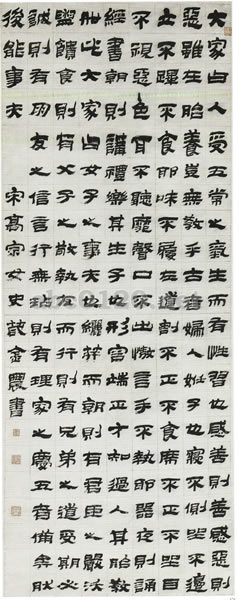 大家曰人受五常之氣生而有性習也感善則善感惡則
惡雖在胎養豈無教乎古者婦人妊子也寢不側坐不邊
立不跛不食邪味不履左道割不正不食席不正不坐目
不視惡色耳不聽靡聲口不出傲言手不執邪器夜則誦
經書朝則講禮樂其生子也形容端正才知過人其胎教
如此大家曰女子之事夫也纚笄而朝則有君臣之嚴沃
盥饋食則有父子之敬執友而行則有兄弟之道受期必
誠則有朋友之信言行無玷則有理家之度五者備矣然
後能事夫 宋高宗女史箴金農書